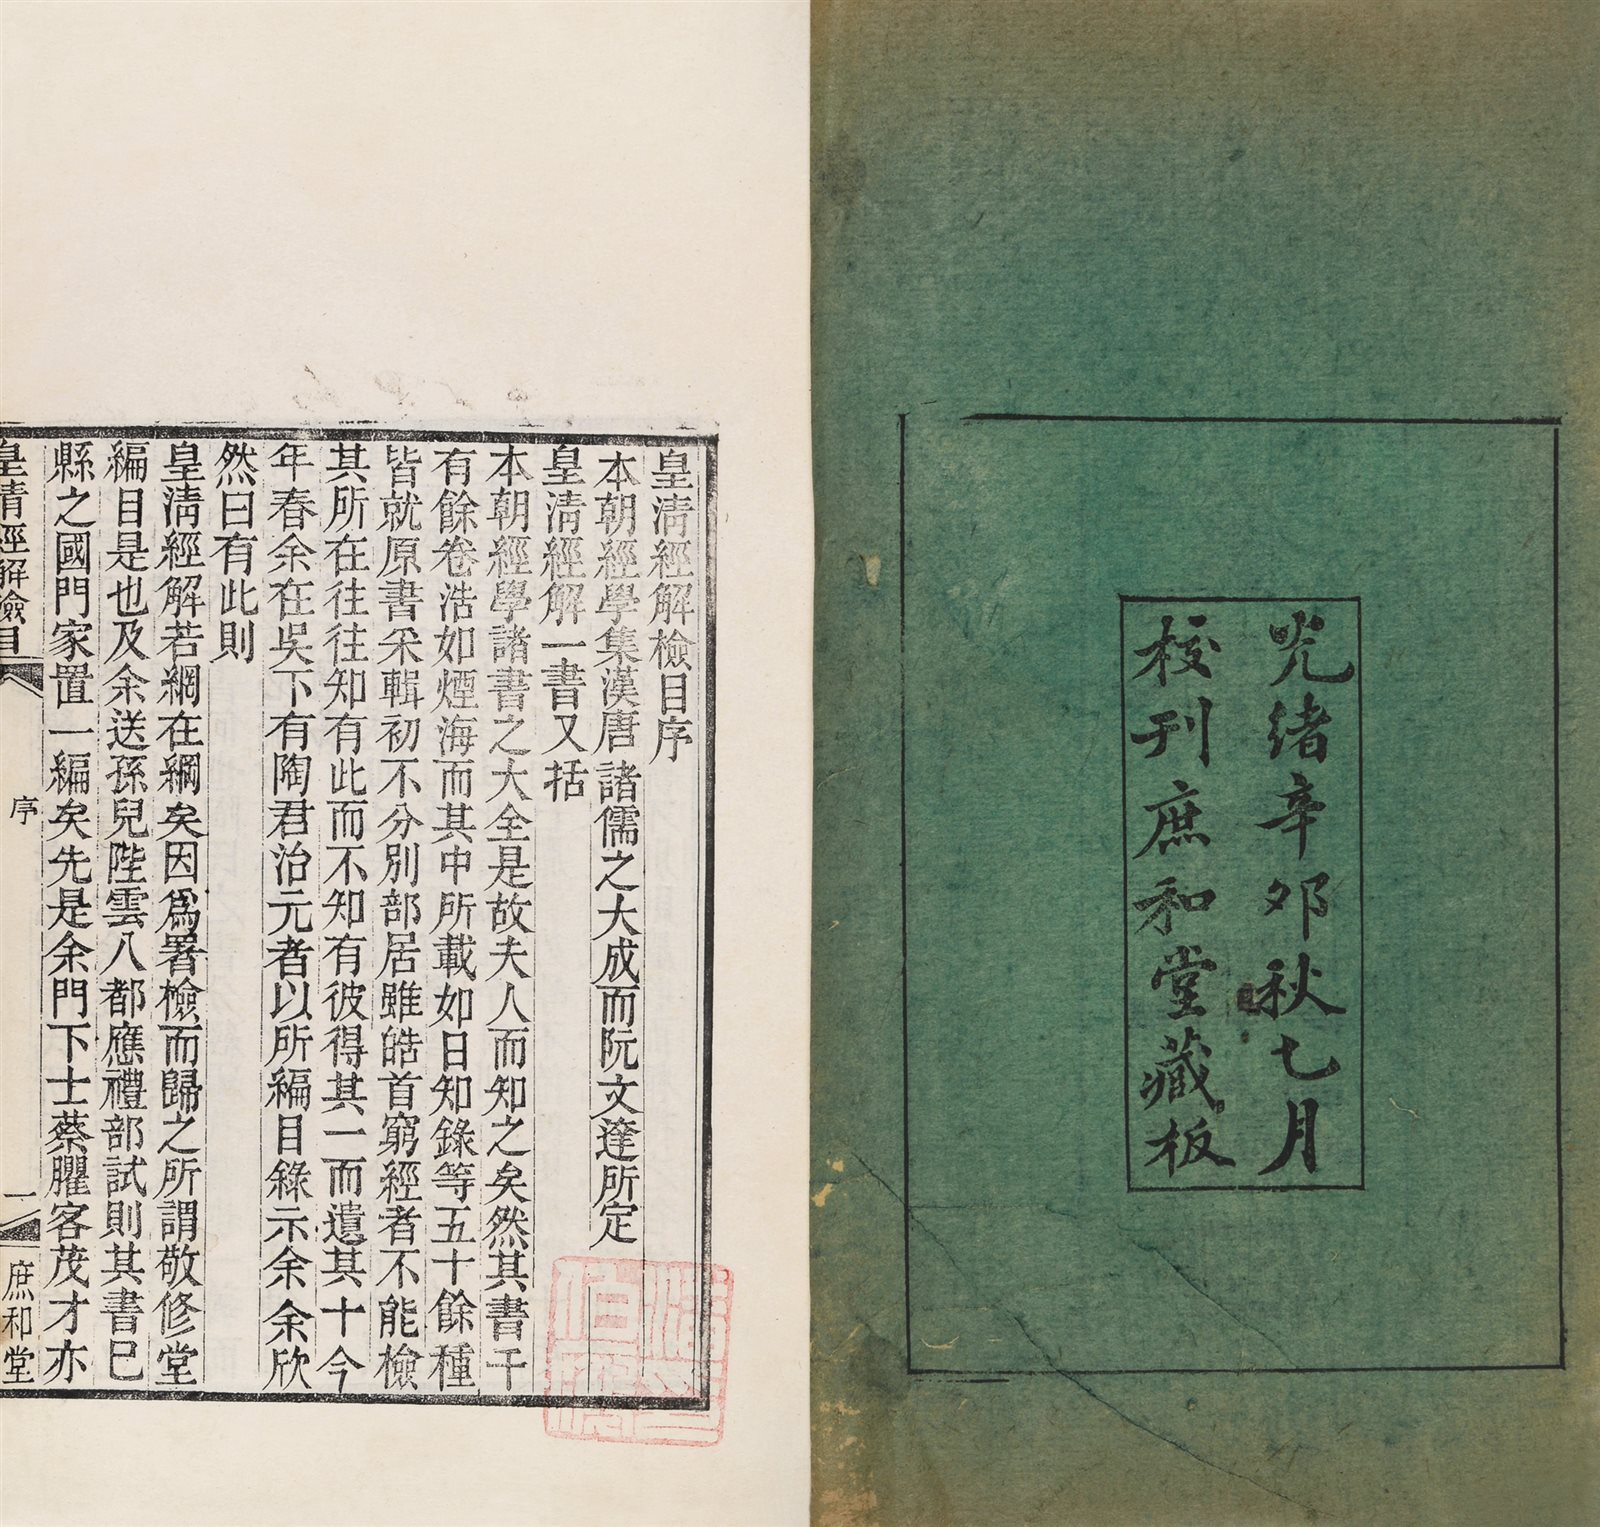 光緒辛卯秋七月
校刊庶和堂藏板
皇清經解檢目序
本朝經學集漢唐諸儒之大成而阮文達所定
皇清經解一書又括
本朝經學諸書之大全是故夫人而知之矣然其書千
有餘卷浩如煙海而其中所載如日知錄等五十餘種
皆就原書采輯初不分別部居雖皓首窮經者不能檢
其所在往往知有此而不知有彼得其一而遺其十今
年春余在吳下有陶君治元者以所編目錄示余余欣
然曰有此則
皇清經解若網在綱矣因爲署檢而歸之所謂敬修堂
編目是也及余送孫兒陛雲入都應禮部試則其書已
縣之國門家置一編矣先是余門下士蔡臞客茂才亦
皇清經解檢目
序
一
庶和堂